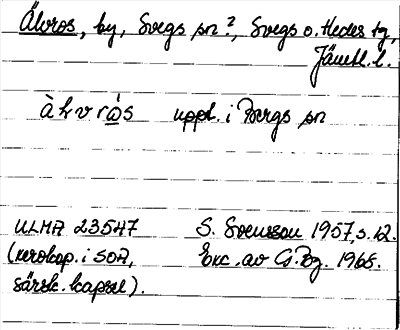 Älvros, by, Svegs sn?, Svegs o. Hedes tg,
Jämtl. l.
àlvrò̲s uppt. i Bergs sn
ULMA 23547 S. Svensson 1957, s. 12.
(xerokop. i SOA, Exc. av G. Bg. 1965.
särsk. kapsel).